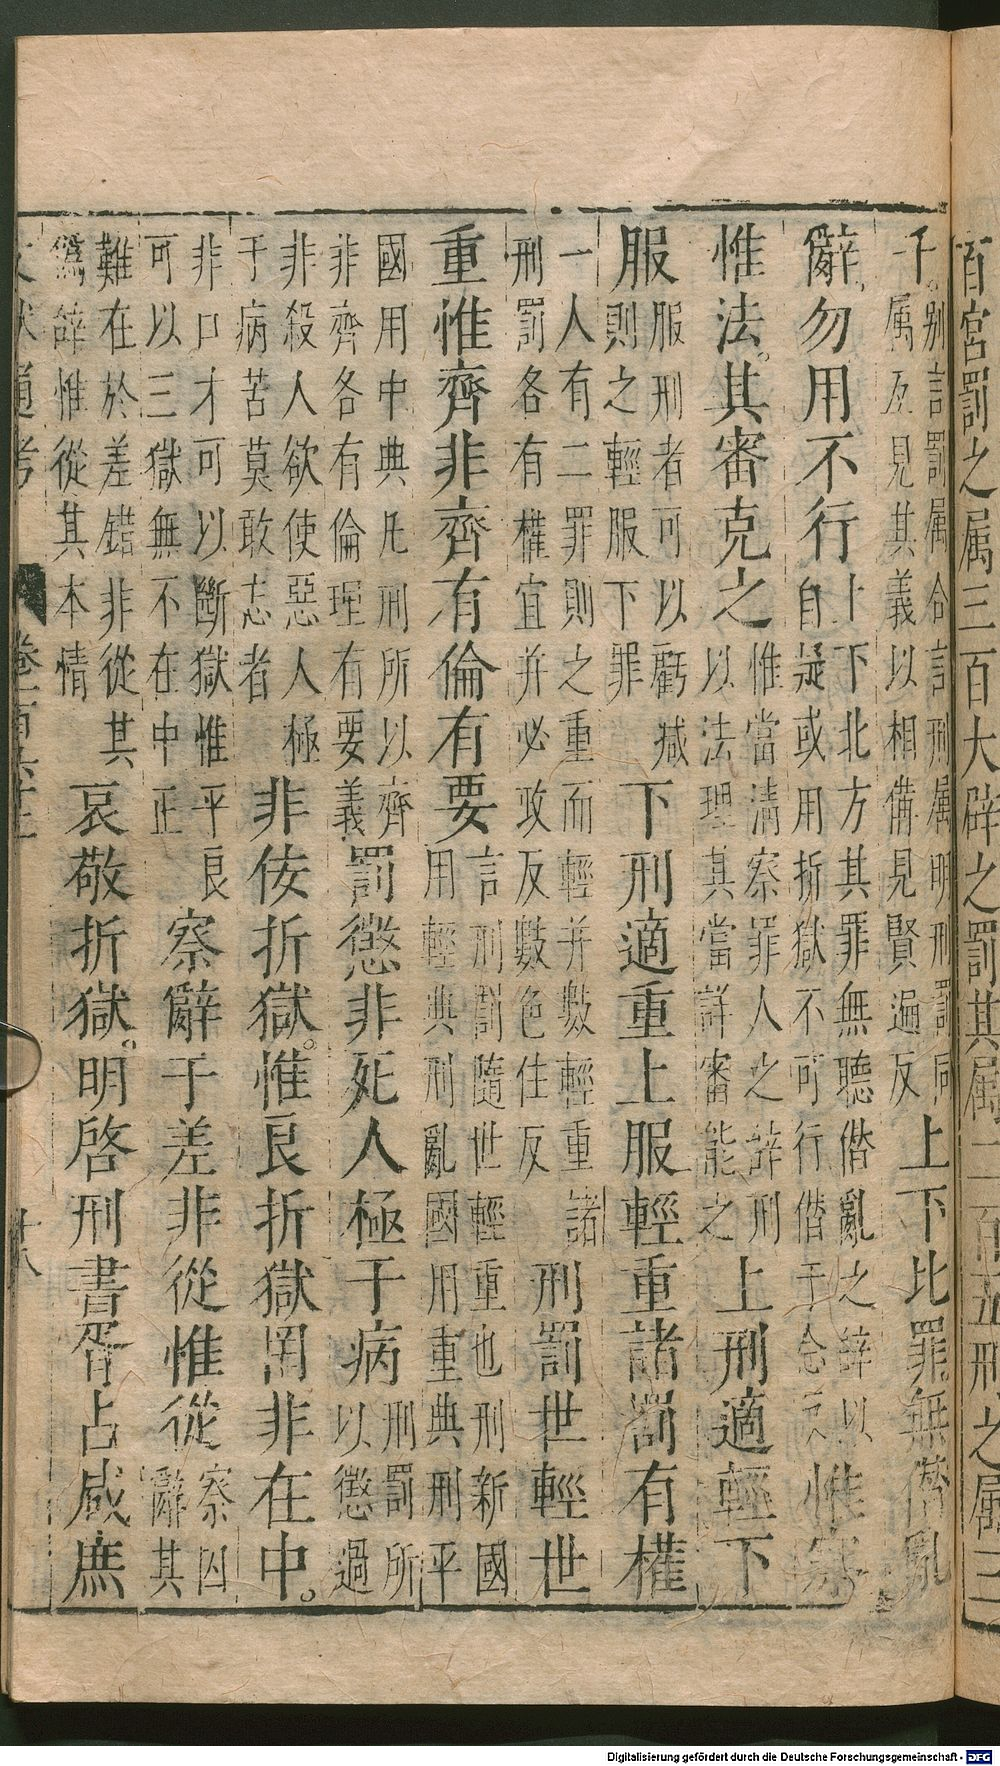 百宮罰之属三百大辟之罰其属二百五刑之属三
千别言罰属合言刑属明刑罰同属互見其義以相備見賢遍反上下比罪無僭亂
辭勿用不行上下北方其罪無聽僭亂之辭以自疑或用折獄不可行僭子念反惟察
惟法其審克之惟當清察罪人之辭刑以法理其當詳審能之上刑適輕下
服服服刑者可以虧减則之輕服下罪下刑適重上服輕重諸罰有權
一人有二罪則之重而輕并數輕重諸刑罰各有權宜并必政反數色住反刑罰世輕世
重惟齊非齊有倫有要言刑罰隨世輕重也刑新國用輕典刑亂國用重典刑平
國用中典凡刑所以齊非齊各有倫理有要義罰懲非死人極于病刑罰所以懲過
非殺人欲使惡人極于病苦莫敢志者非佞折獄惟良折獄罔非在中
非口才可以斷獄惟平良可以三獄無不在中正察辭于差非從惟從察囚辭其
難在於差錯非從其僞辞惟從其本情哀敬折獄明啓刑書胥占咸庶
文献通考 卷一百六十二 廿八
Digitalisierung gefördert durch die Deutsche Forschungsgemeinschaft - DFG